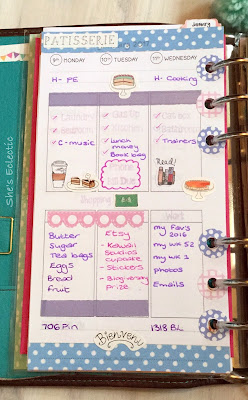 January
PATISSERIE
9th MONDAY
10th TUESDAY
11th WEDNESDAY
H- PE
H- Cooking
Laundry
Bathroom
C-music
Lunch money
Book bag
Trainers
Read!
Shopping
Want
Butter
Sugar
Tea bags
Eggs
Bread
fruit
Etsy
- Kawaii
Studios
cupcake
- Stickers
- Blogiversary
Prize
my Fav's
2016
my wk 52
my wk 1
photos
Emails
706 Pin
1318 BL
Bienvenu
She's Eclectic